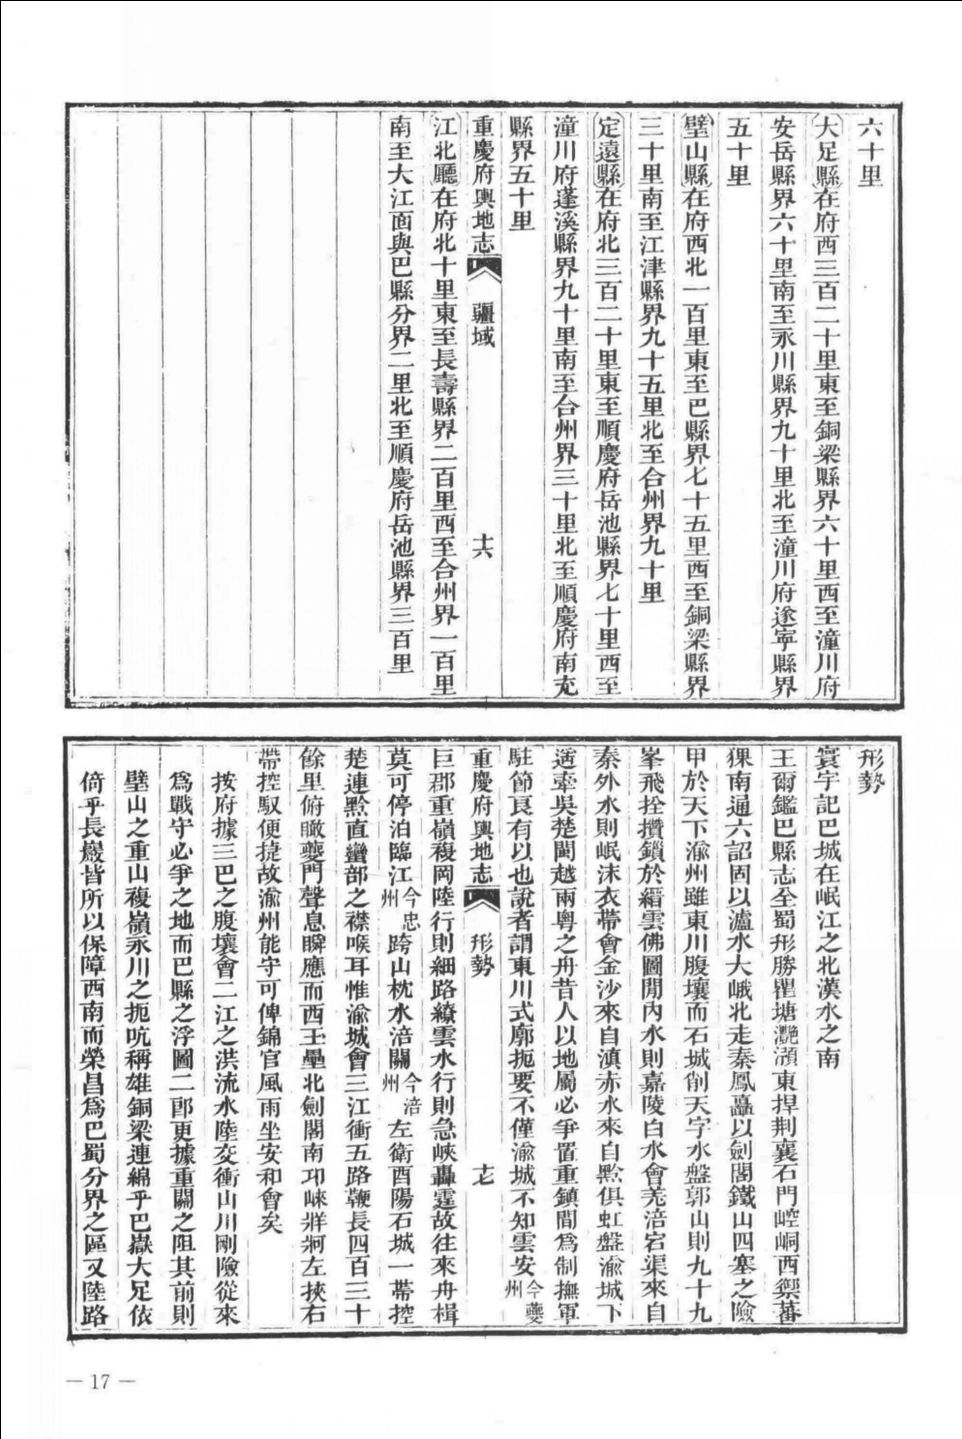 六十里
大足縣在府西三百二十里東至銅梁縣界六十里西至潼川府
安岳縣界六十里南至永川縣界九十里北至潼川府遂寧縣界
五十里
璧山縣在府西北一百里東至巴縣界七十五里西至銅梁縣界
三十里南至江津縣界九十五里北至合州界九十里
定遠縣在府北三百二十里東至順慶府岳池縣界七十里西至
潼川府蓬溪縣界九十里南至合州界三十里北至順慶府南充
縣界五十里
重慶府輿地志 疆域 十六
江北廳在府北十里東至長壽縣界二百里西至合州界一百里
南至大江面與巴縣分界二里北至順慶府岳池縣界三百里
形勢
寰宇記巴城在岷江之北漢水之南
王爾鑑巴縣志全蜀形勝瞿塘灩澦東捍荆襄石門崆峒西禦蕃
猓南通六詔固以瀘水大峨北走秦鳳矗以劍閣鐵山四塞之險
甲於天下渝州雖東川腹壤而石城削天字水盤郭山則九十九
峯飛拴攢鎖於縉雲佛圖閒內水則嘉陵白水會羌涪宕渠來自
秦外水則岷沫衣帶會金沙來自滇赤水來自黔俱虹盤渝城下
遥牽吳楚閩越兩粤之舟昔人以地屬必爭置重鎮間爲制撫軍
駐節良有以也說者謂東川式廓扼要不僅渝城不知雲安今夔州
重慶府輿地志 形勢 十七
巨郡重嶺複岡陸行則細路繚雲水行則急峽轟霆故往來舟楫
莫可停泊臨江今忠州跨山枕水涪關今涪州左衛酉陽石城一帶控
楚連黔直蠻部之襟喉耳惟渝城會三江衝五路鞭長四百三十
餘里俯瞰夔門聲息瞬應而西玉壘北劍閣南邛崍牂牁左挾右
帶控馭便捷故渝州能守可俾錦官風雨坐安和會矣
按府據三巴之腹壤會二江之洪流水陸交衝山川剛險從來
爲戰守必爭之地而巴縣之浮圖二郎更據重關之阻其前則
璧山之重山複嶺永川之扼吭稱雄銅梁連綿乎巴嶽大足依
倚乎長巖皆所以保障西南而榮昌爲巴蜀分界之區又陸路
— 17 —